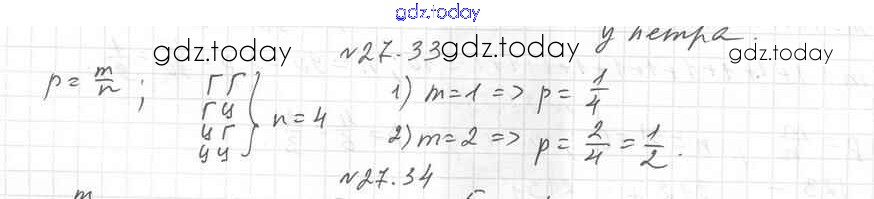 gdz.today
у петра.
gdz.today №27.33 gdz.today gdz.today
p = m/n ; ГГ ГЦ ЦГ ЦЦ } n = 4
1) m = 1 => p = 1/4
2) m = 2 => p = 2/4 = 1/2.
№27.34
m